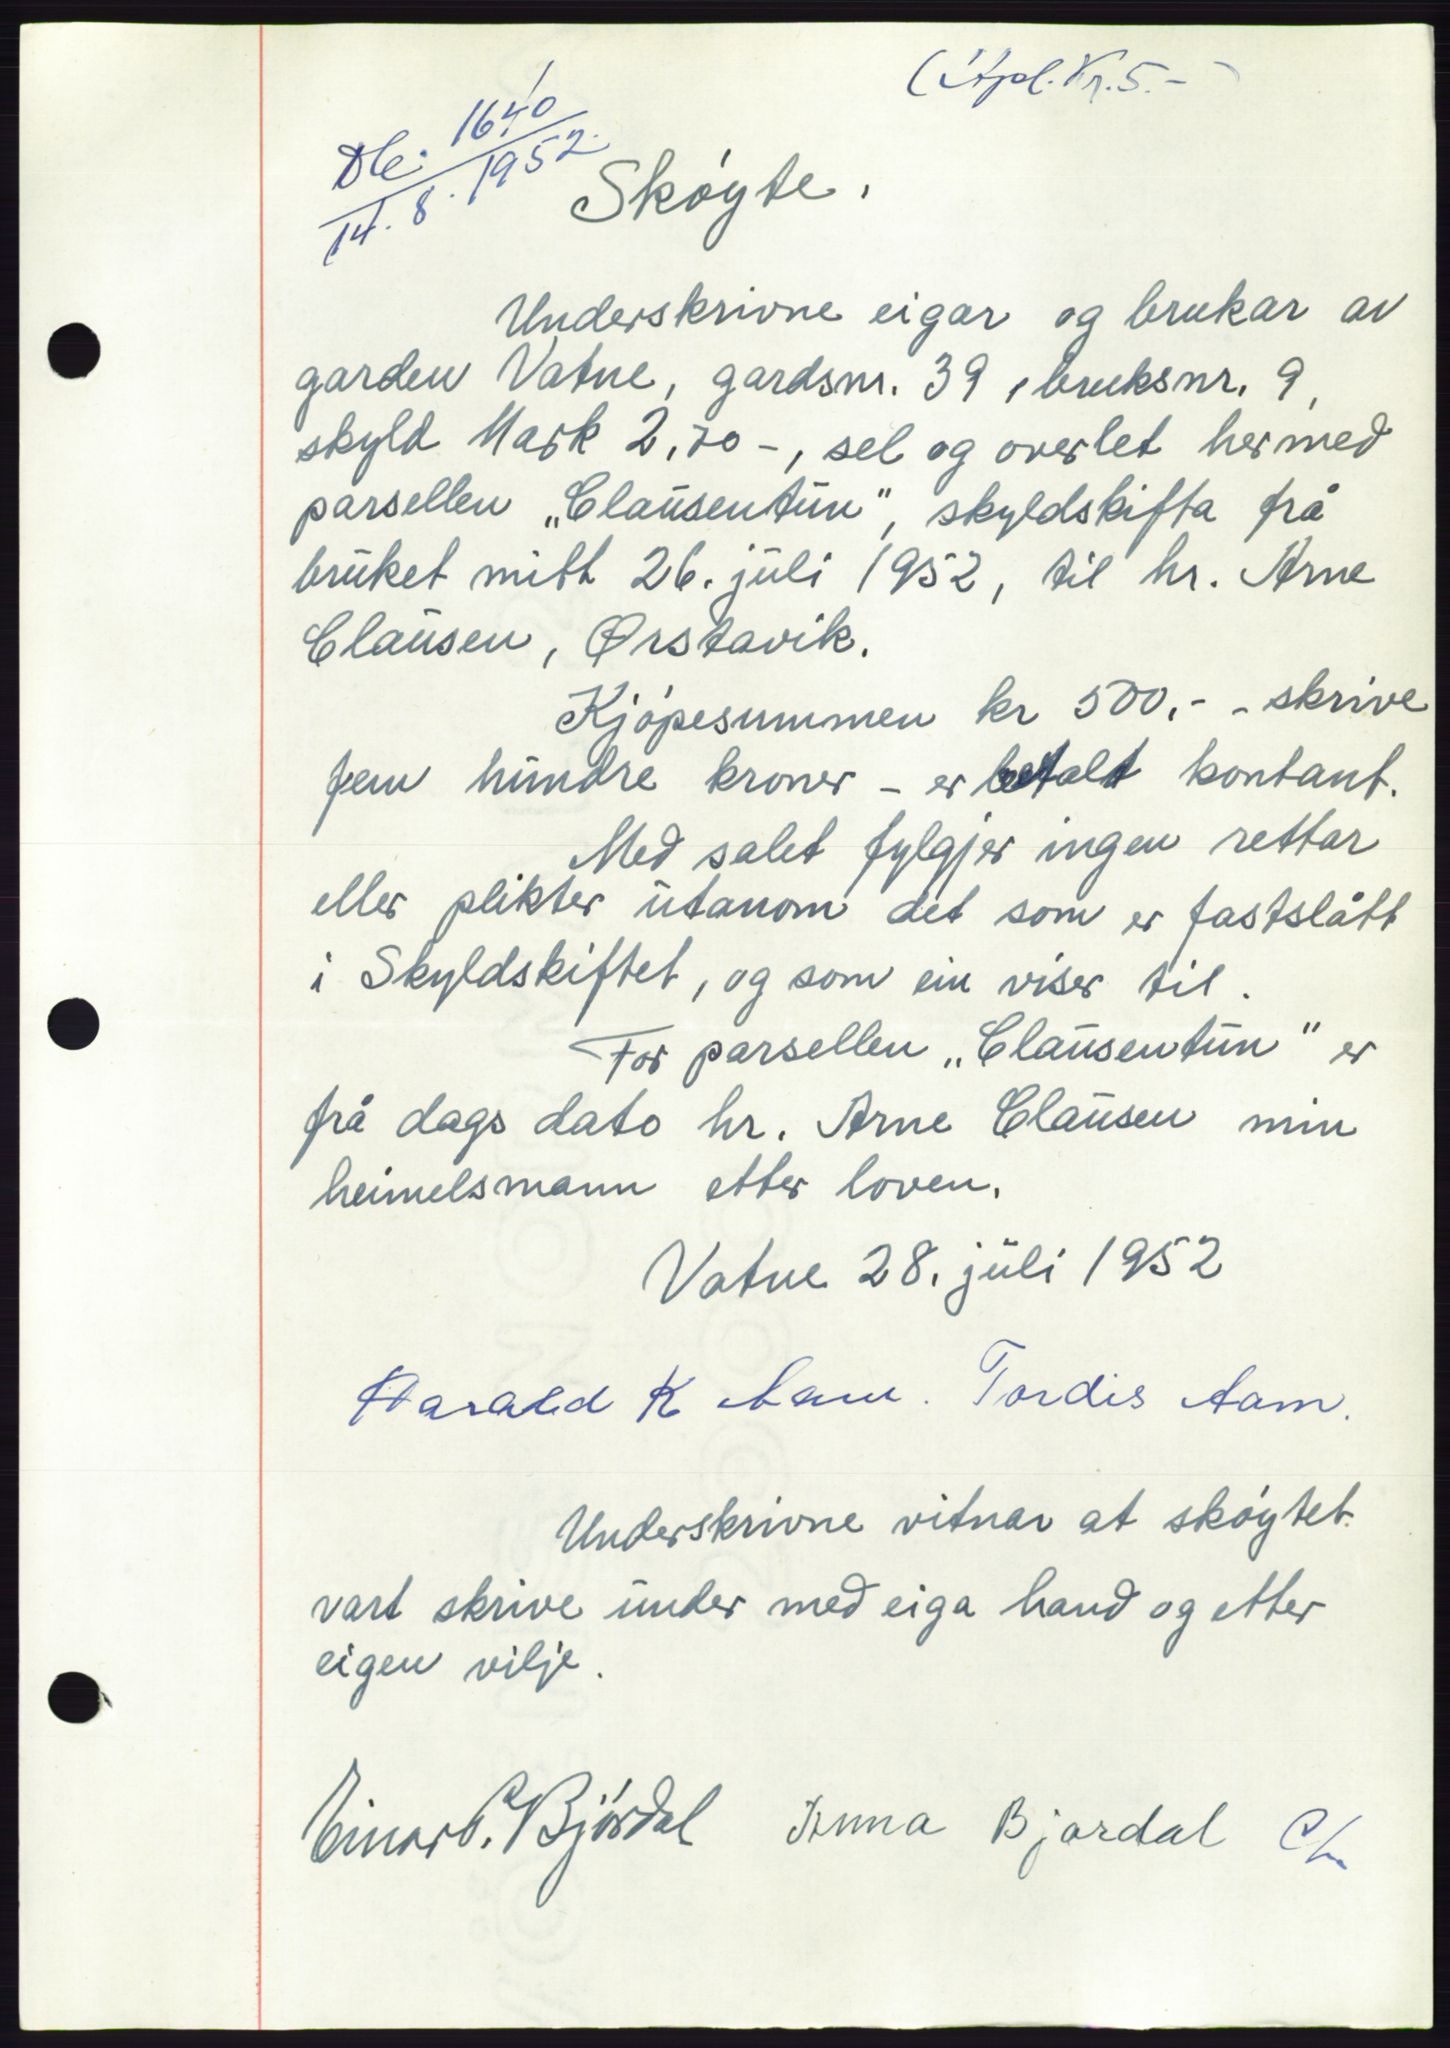 (Stpl. Kr. 5.-)
Db: 1640
14.8.1952.
Skøyte.
Underskrivne eigar og brukar av
garden Vatne, gardsnr. 39, bruksnr. 9,
skyld Mark 2,70 -, sel og overlet hermed
parsellen „Clausentun", skyldskifta frå
bruket mitt 26. juli 1952, til hr. Arne
Clausen, Ørstavik.
Kjøpesummen kr 500,- - skrive
fem hundre kroner - er betalt kontant.
Med salet fylgjer ingen rettar
eller plikter utanom det som er fastslått
i Skyldskiftet, og som ein viser til.
For parsellen „Clausentun" er
frå dags dato hr. Arne Clausen min
heimelsmann etter loven.
Vatne 28. juli 1952
Harald K Aam. Tordis Aam.
Underskrivne vitnar at skøytet
vart skrive under med eiga hand og etter
eigen vilje.
Einar P. Bjørdal Anna Bjørdal